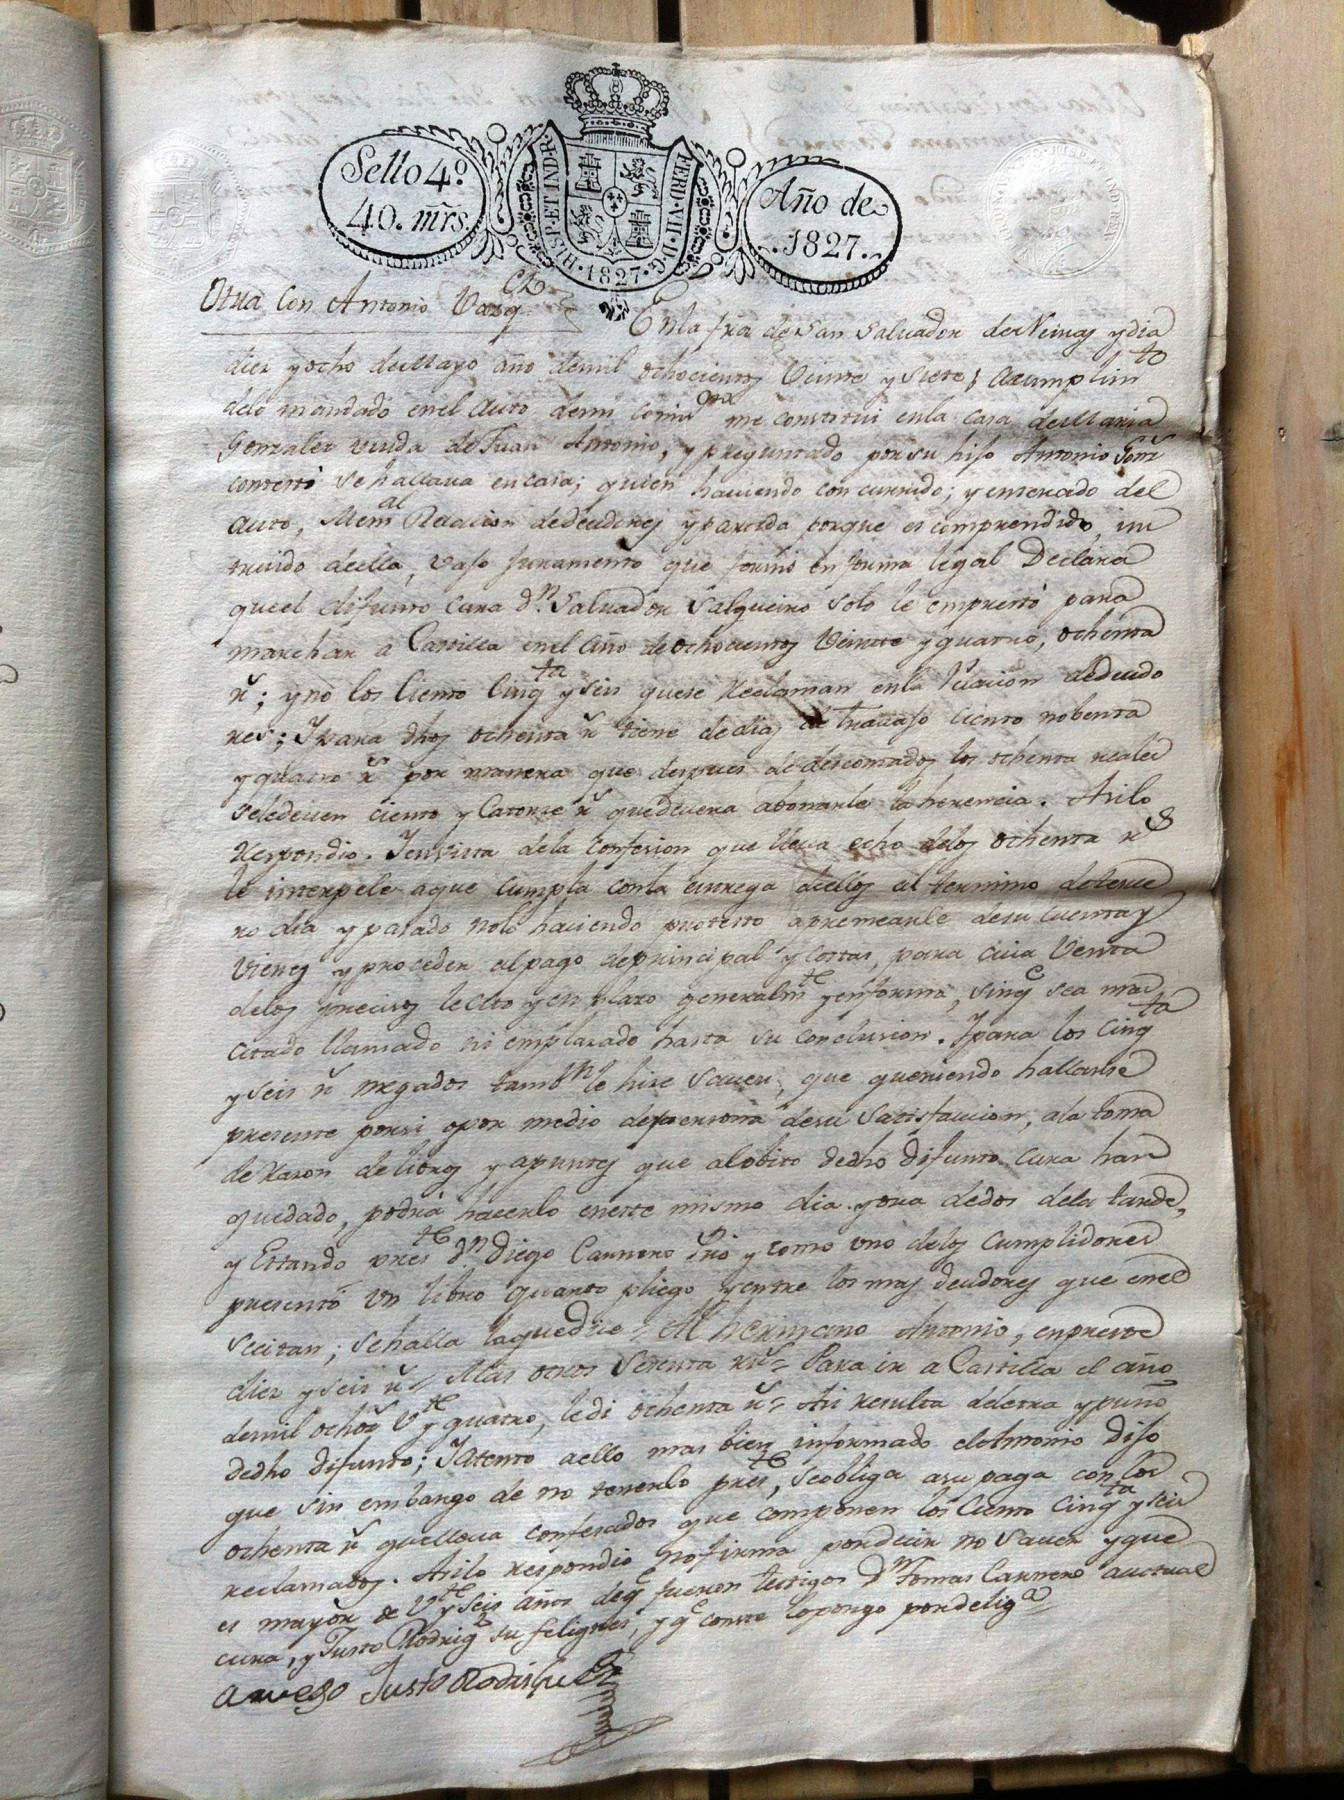 Sello 4º
40. mrs.
HISP. ET IND. R.
FERD. VII. D. G.
1827
Año de
1827.
Otra Con Antonio Vazqez
En la fra de San Salvador de Neiras y dia
diez y ocho de Mayo año de mil ochocientos Veinte y siete; a cumplimto
delo mandado en el auto de mi comion me constitui en la casa de Maria
Gonzalez viuda de Juan Antonio, y preguntado por su hijo Antonio
contestó se hallava en casa; quien haviendo concurrido; y enterado del
auto, Memal Relacion de deudores y partida porque es comprendido, ins
truido de ella, vajo juramento que formó en forma legal Declara
que el difunto cura Dn. Salvador Salgueiro solo le emprestó para
marchar a Castilla en el año de ochocientos Veinte y quatro, ochenta
rs; y no los Ciento Cinqta y seis que se reclaman en la relacion de deudo
res; Y para dhos ochenta rs tiene de dias de Travajo ciento nobenta
y quatro rs por manera que despues de descontados los ochenta reales
se le deven ciento y Catorze rs que devera abonarle la herencia. Asi lo
Respondio. Y en vista de la confesion que lleva echo de los ochenta rs
le interpele a que cumpla con la entrega de ellos al termino de terce
ro dia y pasado no lo haciendo protesto apremearle de su cuenta y
Vienes y proceder al pago de principal y costas, para cuia Venta
de los precisos le cito y en plazo generalmte y en forma, sin qe sea mas
citado llamado ni emplazado hasta su conclusion. Y para los Cinqta
y seis rs negados tambn le hize saver, que queriendo hallarse
presente por si o por medio de persona de su satisfaccion, a la toma
de razon de libros y apuntes que al obito de dho difunto cura han
quedado, podrá hacerlo en este mismo dia y ora de dos de la tarde,
y Estando preste Dn Diego Carnero Prio y como uno de los Cumplidores
presentó un libro quarto pliego y entre los mas deudores que en el
se citan; se halla la que dice = Al hermano Antonio, enpreste
diez y seis rs = Mas otros Setenta rs = Para ir a Castilla el año
de mil ochos Vte y quatro, le di ochenta rs = Asi resulta de letra y puño
de dho difunto; Y atento a ello mas bien informado el Antonio Dijo
que sin embargo de no tenerlo preste, se obliga a su paga con los
ochenta rs que lleva confesados que componen los Ciento Cinqta y seis
reclamados. Asi lo respondio no firma por decir no saver y que
es mayor de Vte y seis años de qe fueron testigos Dn Tomas Carnero auctual
cura, y Justo Rodrigz su feligres, y qe conste lo pongo por deliga
a ruego Justo Rodriguez